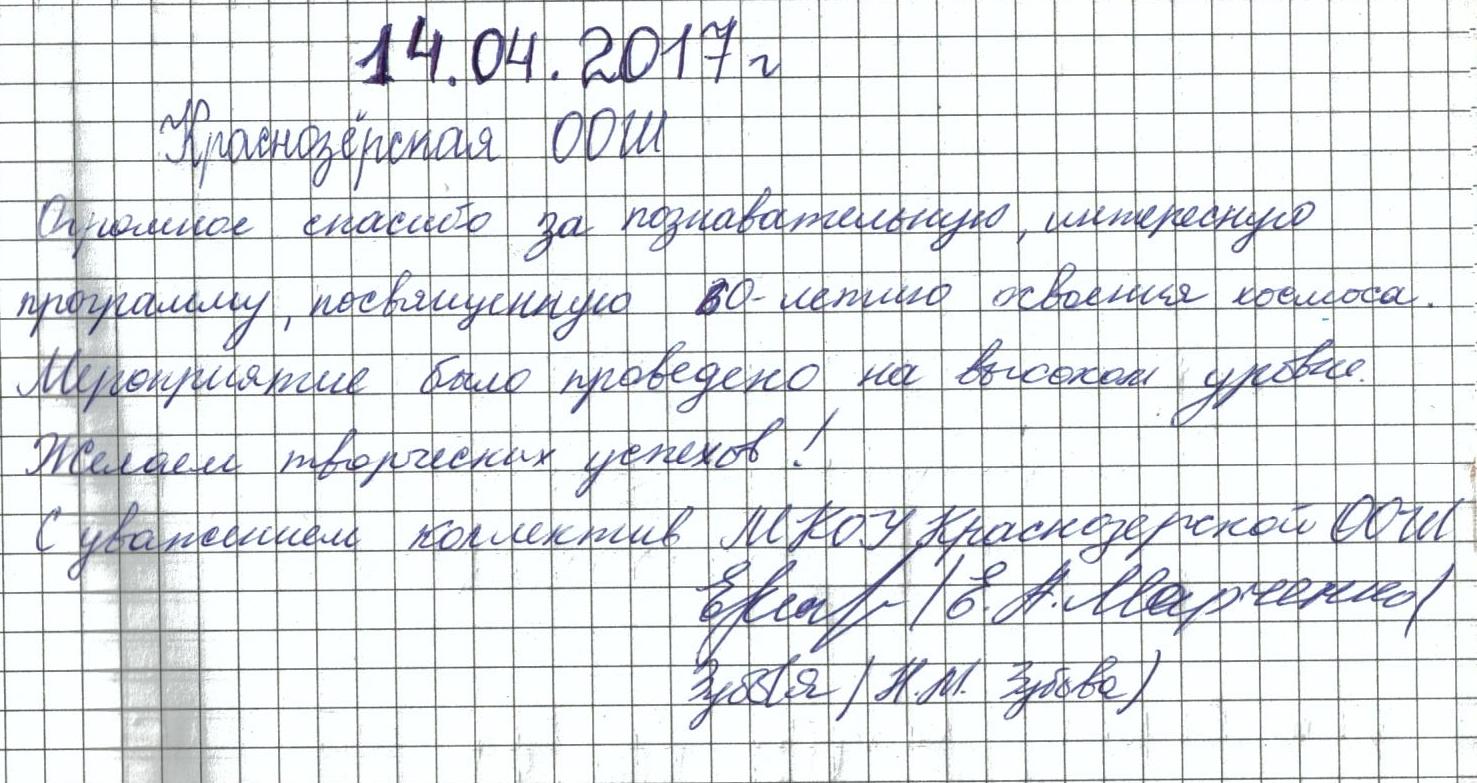 14.04.2017 г
Краснозёрская ООШ
Огромное спасибо за познавательную, интересную
программу, посвященную 60-летию освоения космоса.
Мероприятие было проведено на высоком уровне.
Желаем творческих успехов!
С уважением коллектив МКОУ Краснозерской ООШ
/Е.А.Марченко/
/Н.М. Зубова/